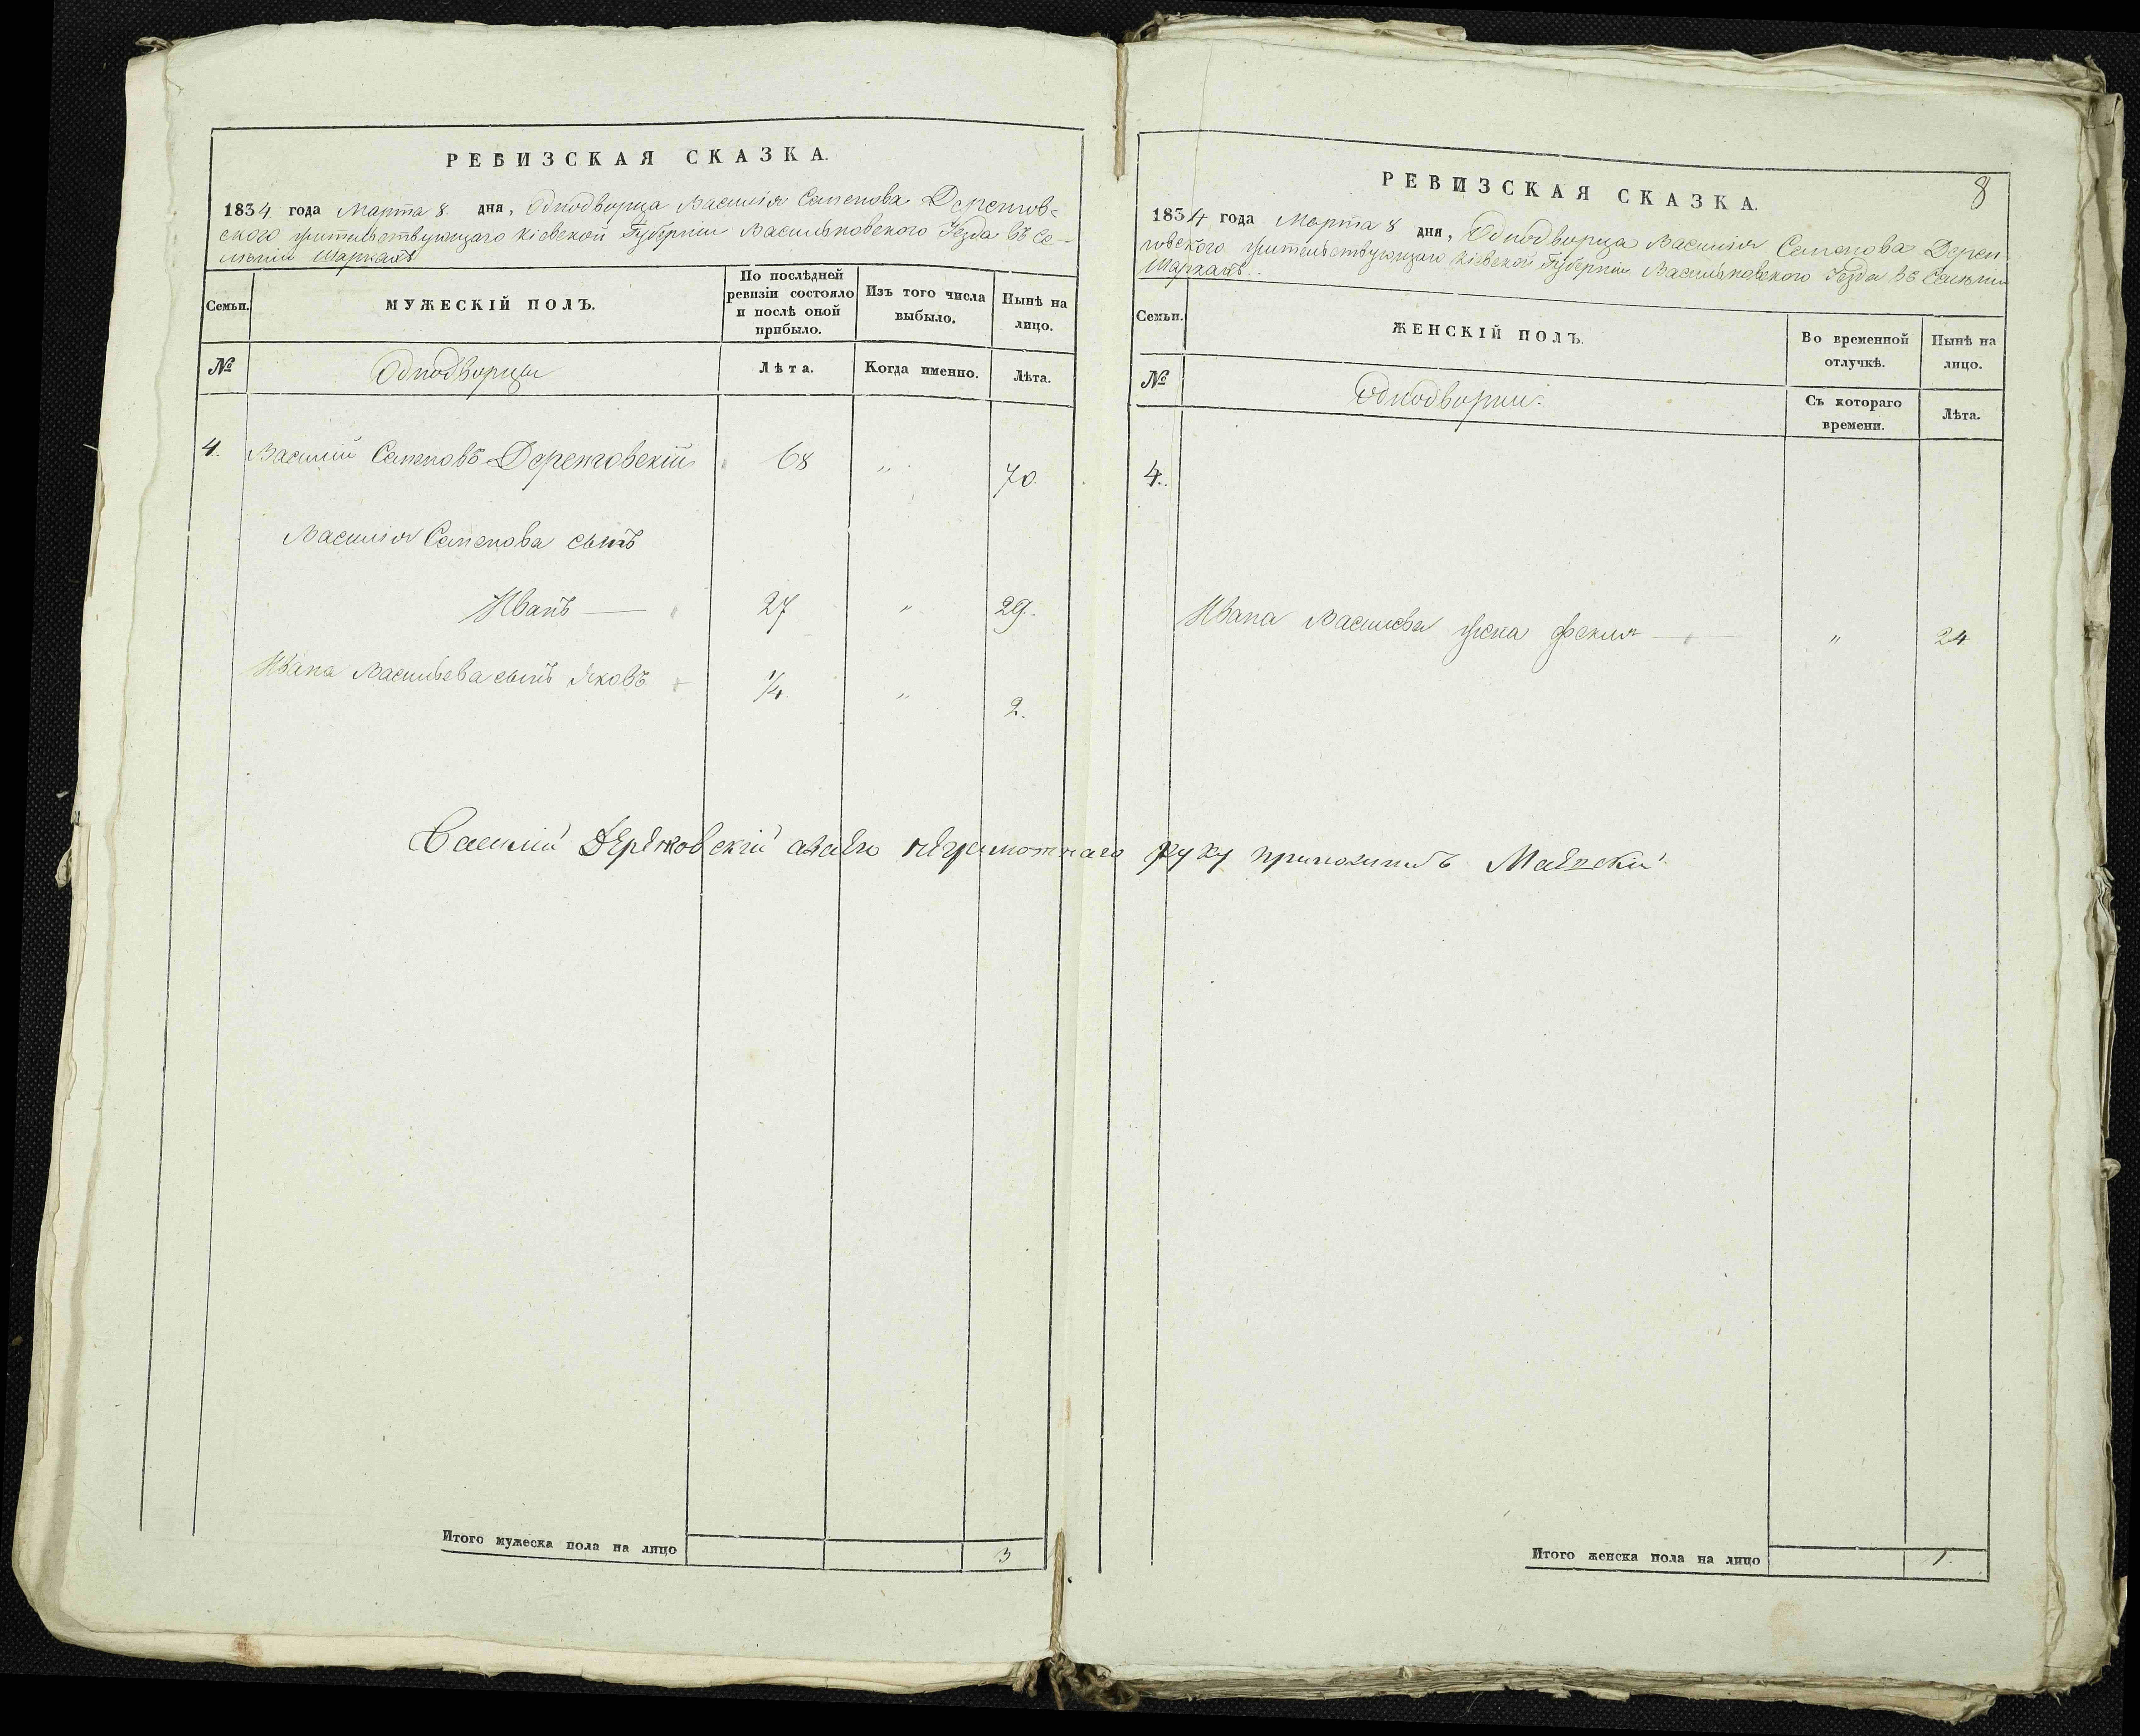 РЕВИЗСКАЯ СКАЗКА.
1834 года Марта 8. дня, Однодворца Василія Семенова Деренгов-
ского жительствующаго Кіевской Губерніи Васильковского Уезда въ Се-
леніи Шаркахъ
Семьи.
МУЖЕСКІЙ ПОЛЪ.
По послѣдней ревизіи состояло и послѣ оной прибыло.
Изъ того числа выбыло.
Нынѣ на лицо.
№
Однодворцы
Лѣта.
Когда именно.
Лѣта.
4. Василій Семеновъ Деренговскій 68 „ 70.
Василія Семенова сынъ
Иванъ — 27 „ 29.
Ивана Васильева сынъ Яковъ 1/4. „ 2.
Василій Деренговскій а вместо неграмотнаго руку приложилъ
Итого мужеска пола на лицо 3
8
РЕВИЗСКАЯ СКАЗКА.
1834 года Марта 8 дня, Однодворца Василія Семенова Дерен
говского жительствующаго Кіевской Губерніи Васильковского Уезда въ Селеніи
Шаркахъ.
Семьи.
ЖЕНСКІЙ ПОЛЪ.
Во временной отлучкѣ.
Нынѣ на лицо.
№
Однодворки.
Съ котораго времени.
Лѣта.
4.
Ивана Василева жена Фекла — „ 24
Итого женска пола на лицо 1.